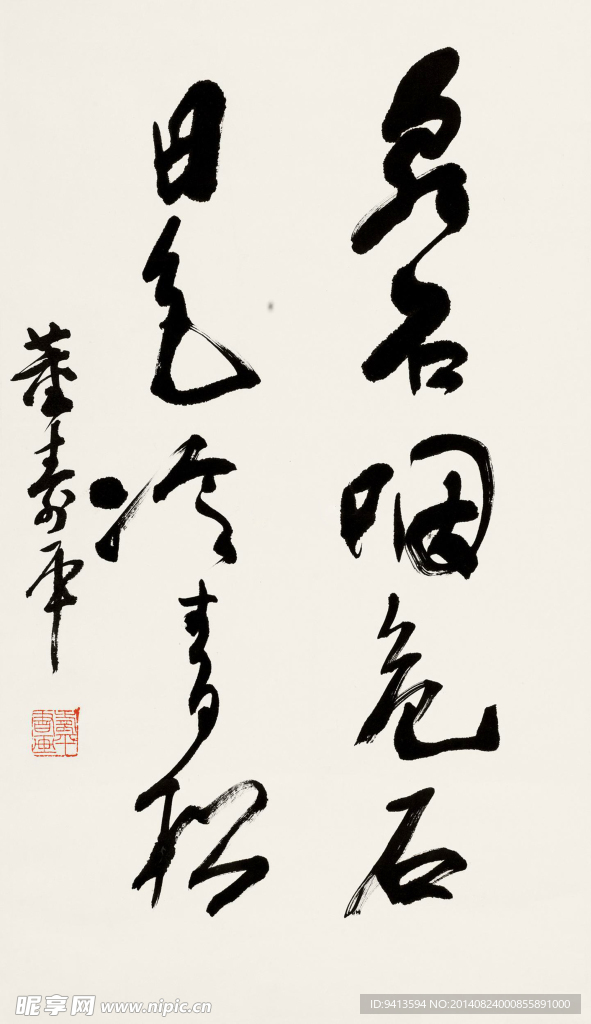 泉声咽危石
日色冷青松
董寿平
昵享网 www.nipic.cn
ID:9413594 NO:20140824000855891000